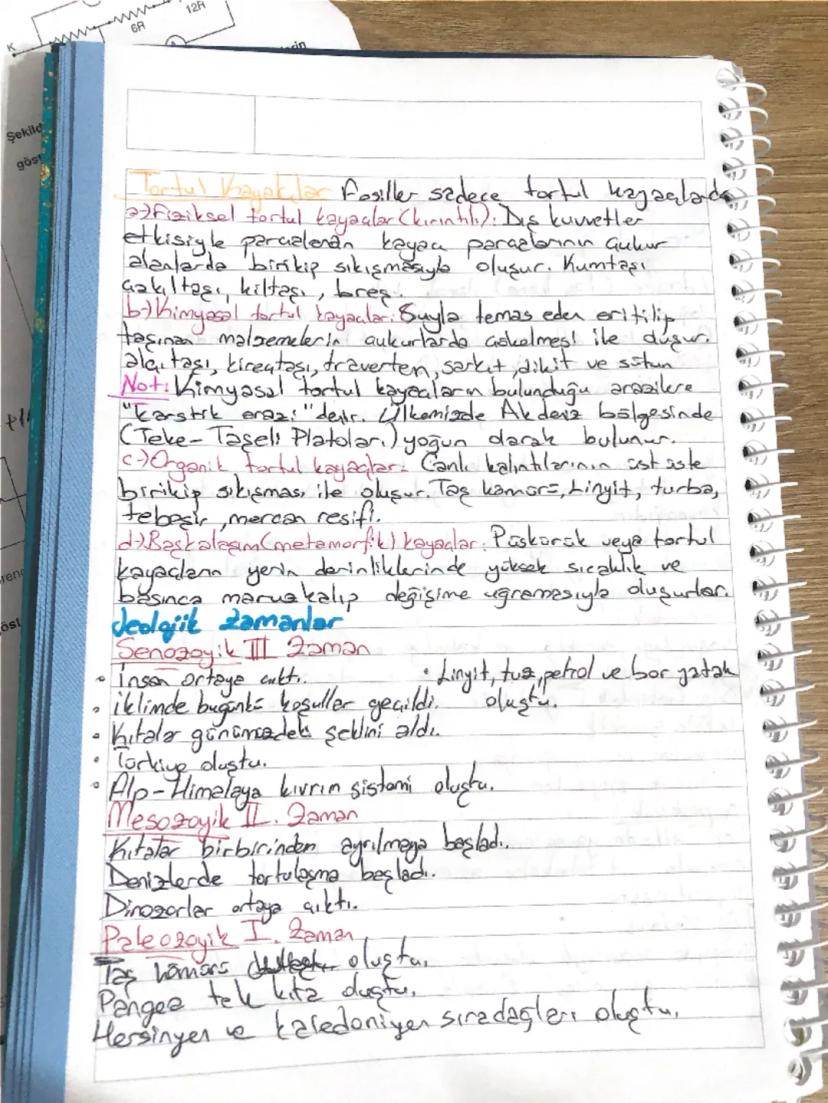 12R
6R
K
Şekilde
göst
Tortul Kayaçlar Fosiller sadece tortul kayaçlarda
a-) Fiziksel tortul kayaçlar (kırıntılı): Dış kuvvetler
etkisiyle parçalanan kayaç parçalarının çukur
alanlarda birikip sıkışmasıyla oluşur. Kumtaşı
çakıltaşı, kiltaşı, breş.
b-) Kimyasal tortul kayaçlar: Suyla temas eden eritilip
taşınan malzemelerin çukurlarda çökelmesi ile oluşur.
alçıtaşı, kireçtaşı, traverten, sarkıt, dikit ve sütun
Not: Kimyasal tortul kayaçların bulunduğu arazilere
"karstik arazi" denir. Ülkemizde Akdeniz bölgesinde
(Teke-Taşeli Platoları) yoğun olarak bulunur.
c-) Organik tortul kayaçlar: Canlı kalıntılarının üst üste
birikip sıkışması ile oluşur. Taş kömürü, Linyit, turba,
tebeşir, mercan resifi.
d-) Başkalaşım (metamorfik) kayaçlar: Püskürük veya tortul
kayaçların yerin derinliklerinde yüksek sıcaklık ve
basınca maruz kalıp değişime uğramasıyla oluşurlar.
Jeolojik Zamanlar
Senozoyik III Zaman
• İnsan ortaya çıktı. • Linyit, tuz, petrol ve bor yatak
• İklimde bugünkü koşullar geçildi. oluştu.
• Kıtalar günümüzdeki şeklini aldı.
• Türkiye oluştu.
• Alp-Himalaya kıvrım sistemi oluştu.
Mesozoyik II. Zaman
Kıtalar birbirinden ayrılmaya başladı.
Denizlerde tortulaşma başladı.
Dinozorlar ortaya çıktı.
Paleozoyik I. Zaman
Taş kömürü oluştu.
Pangea tek kıta oluştu.
Hersinyen ve kaledoniyen sıradağları oluştu.